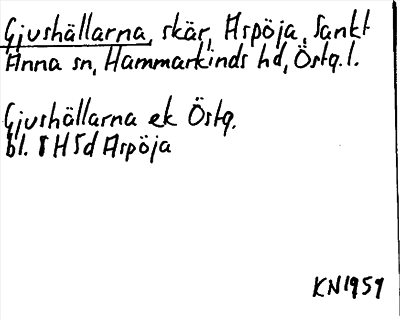 Gjushällarna, skär, Aspöja, Sankt
Anna sn, Hammarkinds hd, Östg. l.
Gjushällarna ek Östg.
bl. 8 H 5d Aspöja
KN 1959